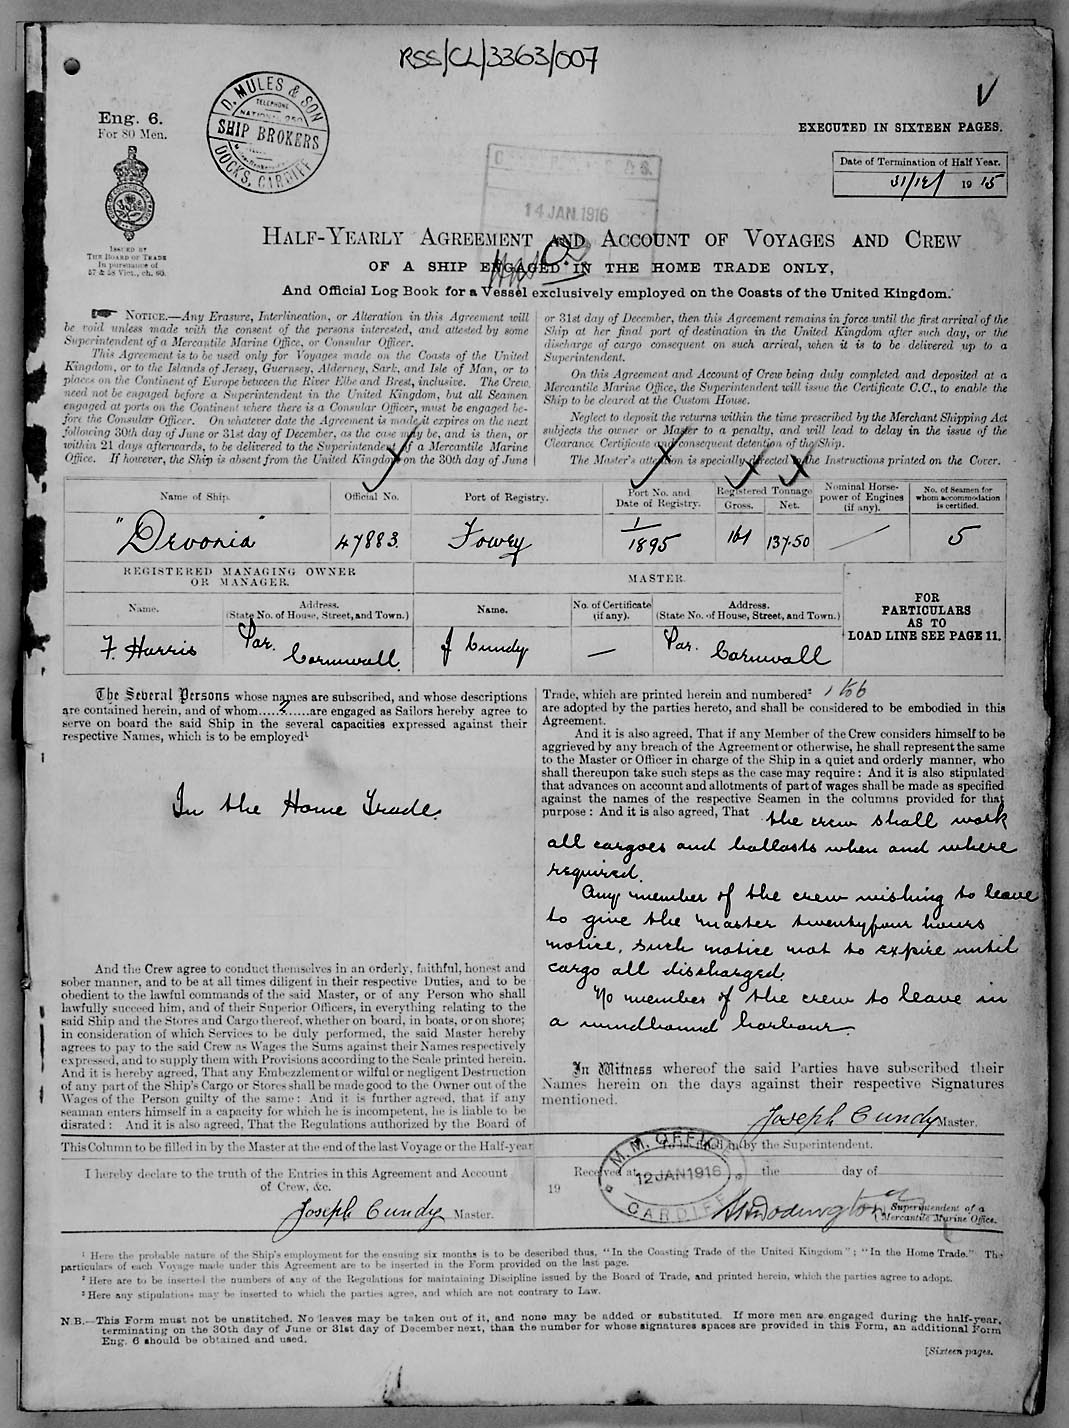 RSS/CL/3363/007
V
Eng. 6.
For 80 Men.
D. MULES & SON
TELEPHONE
SHIP BROKERS
DOCKS, CARDIFF
EXECUTED IN SIXTEEN PAGES.
Date of Termination of Half Year.
31/12/ 1915
14 JAN. 1916
ISSUED BY
THE BOARD OF TRADE
In pursuance of
57 & 58 Vict., ch. 60.
HALF-YEARLY AGREEMENT AND ACCOUNT OF VOYAGES AND CREW
OF A SHIP ENGAGED IN THE HOME TRADE ONLY,
And Official Log Book for a Vessel exclusively employed on the Coasts of the United Kingdom.
NOTICE.—Any Erasure, Interlineation, or Alteration in this Agreement will
be void unless made with the consent of the persons interested, and attested by some
Superintendent of a Mercantile Marine Office, or Consular Officer.
This Agreement is to be used only for Voyages made on the Coasts of the United
Kingdom, or to the Islands of Jersey, Guernsey, Alderney, Sark, and Isle of Man, or to
places on the Continent of Europe between the River Elbe and Brest, inclusive. The Crew
need not be engaged before a Superintendent in the United Kingdom, but all Seamen
engaged at ports on the Continent where there is a Consular Officer, must be engaged be-
fore the Consular Officer. On whatever date the Agreement is made it expires on the next
following 30th day of June or 31st day of December, as the case may be, and is then, or
within 21 days afterwards, to be delivered to the Superintendent of a Mercantile Marine
Office. If however, the Ship is absent from the United Kingdom on the 30th day of June
or 31st day of December, then this Agreement remains in force until the first arrival of the
Ship at her final port of destination in the United Kingdom after such day, or the
discharge of cargo consequent on such arrival, when it is to be delivered up to a
Superintendent.
On this Agreement and Account of Crew being duly completed and deposited at a
Mercantile Marine Office, the Superintendent will issue the Certificate C.C., to enable the
Ship to be cleared at the Custom House.
Neglect to deposit the returns within the time prescribed by the Merchant Shipping Act
subjects the owner or Master to a penalty, and will lead to delay in the issue of the
Clearance Certificate and consequent detention of the Ship.
The Master's attention is specially directed to the Instructions printed on the Cover.
Name of Ship.
Official No.
Port of Registry.
Port No. and
Date of Registry.
Registered Tonnage
Gross. Net.
Nominal Horse-
power of Engines
(if any).
No. of Seamen for
whom accommodation
is certified.
"Devonia" 47883. Fowey 1/1895 161 137.50 5
REGISTERED MANAGING OWNER
OR MANAGER.
MASTER.
FOR
PARTICULARS
AS TO
LOAD LINE SEE PAGE 11.
Name.
Address.
(State No. of House, Street, and Town.)
Name.
No. of Certificate
(if any).
Address.
(State No. of House, Street, and Town.)
F. Harris Par. Cornwall. J Cundy — Par. Cornwall
The Several Persons whose names are subscribed, and whose descriptions
are contained herein, and of whom.....2.....are engaged as Sailors hereby agree to
serve on board the said Ship in the several capacities expressed against their
respective Names, which is to be employed¹
In the Home Trade.
And the Crew agree to conduct themselves in an orderly, faithful, honest and
sober manner, and to be at all times diligent in their respective Duties, and to be
obedient to the lawful commands of the said Master, or of any Person who shall
lawfully succeed him, and of their Superior Officers, in everything relating to the
said Ship and the Stores and Cargo thereof, whether on board, in boats, or on shore;
in consideration of which Services to be duly performed, the said Master hereby
agrees to pay to the said Crew as Wages the Sums against their Names respectively
expressed, and to supply them with Provisions according to the Scale printed herein.
And it is hereby agreed, That any Embezzlement or wilful or negligent Destruction
of any part of the Ship's Cargo or Stores shall be made good to the Owner out of the
Wages of the Person guilty of the same: And it is further agreed, that if any
seaman enters himself in a capacity for which he is incompetent, he is liable to be
disrated: And it is also agreed, That the Regulations authorized by the Board of
Trade, which are printed herein and numbered² 1 to 6
are adopted by the parties hereto, and shall be considered to be embodied in this
Agreement.
And it is also agreed, That if any Member of the Crew considers himself to be
aggrieved by any breach of the Agreement or otherwise, he shall represent the same
to the Master or Officer in charge of the Ship in a quiet and orderly manner, who
shall thereupon take such steps as the case may require: And it is also stipulated
that advances on account and allotments of part of wages shall be made as specified
against the names of the respective Seamen in the columns provided for that
purpose: And it is also agreed, That the crew shall work
all cargoes and ballasts when and where
required.
Any member of the crew wishing to leave
to give the master twentyfour hours
notice, such notice not to expire until
cargo all discharged.
No member of the crew to leave in
a windbound harbour
In Witness whereof the said Parties have subscribed their
Names herein on the days against their respective Signatures
mentioned.
Joseph Cundy Master.
This Column to be filled in by the Master at the end of the last Voyage or the Half-year
I hereby declare to the truth of the Entries in this Agreement and Account
of Crew, &c.
Joseph Cundy Master.
To be filled in by the Superintendent.
Received at the day of
19
M. M. OFFICE
12 JAN 1916
CARDIFF
Superintendent of a
Mercantile Marine Office.
¹ Here the probable nature of the Ship's employment for the ensuing six months is to be described thus, "In the Coasting Trade of the United Kingdom"; "In the Home Trade." The
particulars of each Voyage made under this Agreement are to be inserted in the Form provided on the last page.
² Here are to be inserted the numbers of any of the Regulations for maintaining Discipline issued by the Board of Trade, and printed herein, which the parties agree to adopt.
³ Here any stipulations may be inserted to which the parties agree, and which are not contrary to Law.
N.B.—This Form must not be unstitched. No leaves may be taken out of it, and none may be added or substituted. If more men are engaged during the half-year,
terminating on the 30th day of June or 31st day of December next, than the number for whose signatures spaces are provided in this Form, an additional Form
Eng. 6 should be obtained and used.
[Sixteen pages.